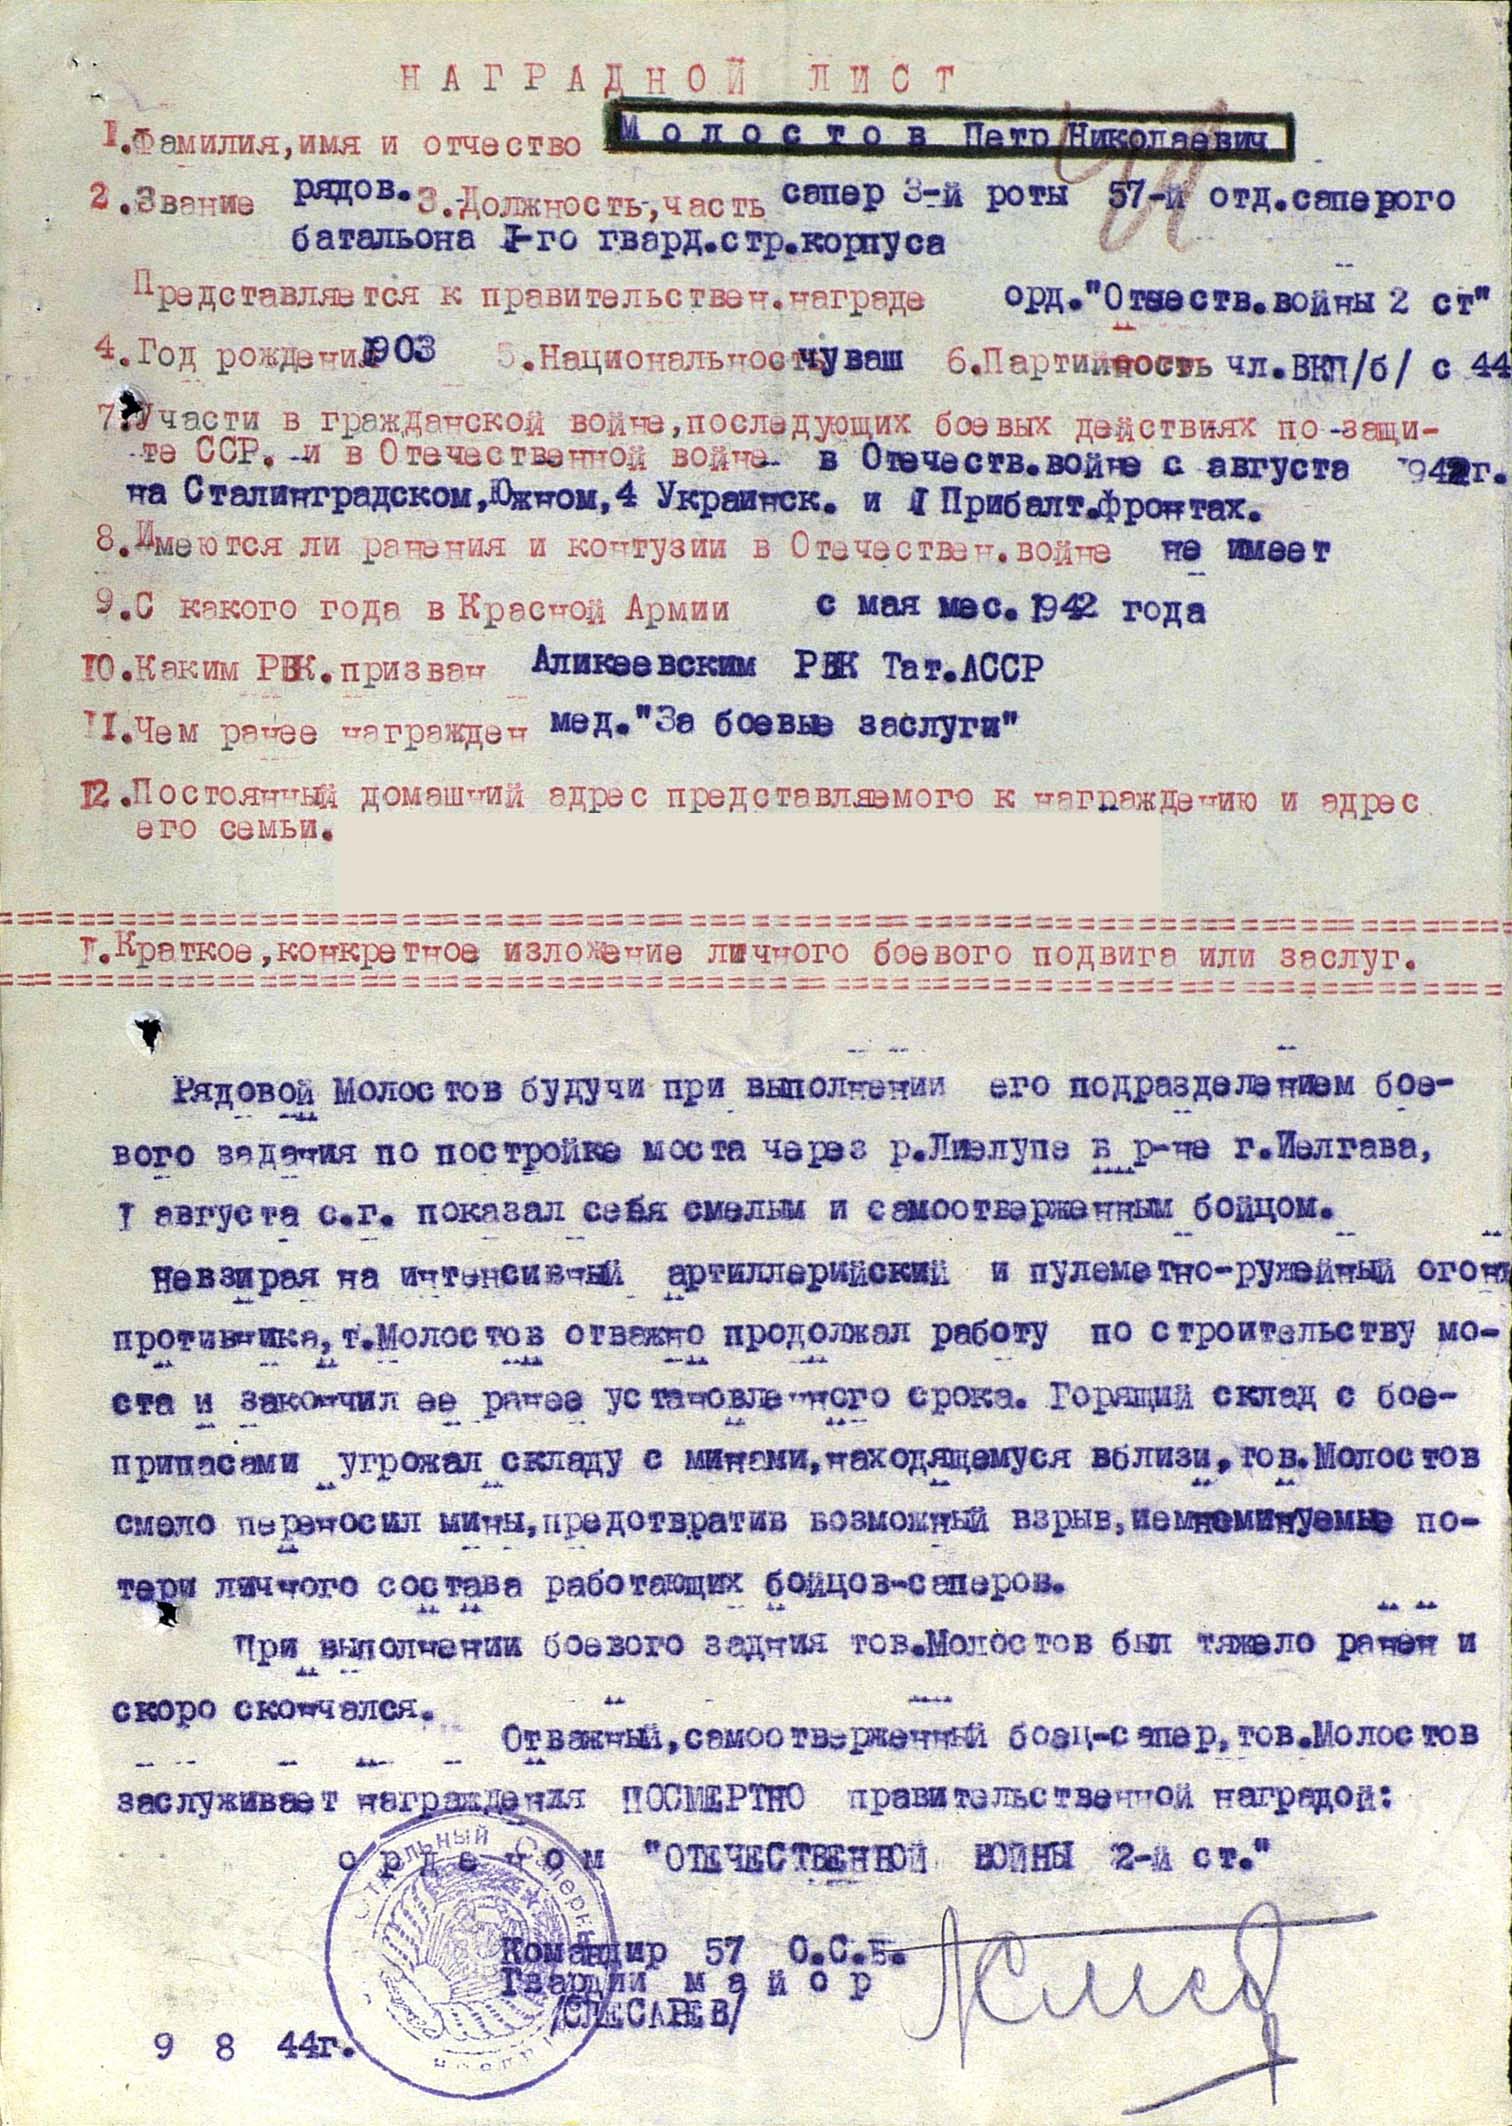 НАГРАДНОЙ ЛИСТ
1.Фамилия,имя и отчество Молостов Петр Николаевич
2.Звание рядов. 3.Должность,часть сапер 3-й роты 57-й отд.саперого
батальона I-го гвард.стр.корпуса
Представляется к правительствен.награде орд."Отеств.войны 2 ст"
4.Год рождения 1903 5.Национальность чуваш 6.Партийность чл.ВКП/б/ с 44
7.Участи в гражданской войне,последующих боевых действиях по защи-
те ССР. и в Отечественной войне в Отечеств.войне с августа 1942г.
на Сталинградском,Южном,4 Украинск. и I Прибалт.фронтах.
8.Имеются ли ранения и контузии в Отечествен.войне не имеет
9.С какого года в Красной Армии с мая мес.1942 года
10.Каким РВК.призван Аликеевским РВК Тат.АССР
11.Чем ранее награжден мед."За боевые заслуги"
12.Постоянный домашний адрес представляемого к награждению и адрес
его семьи.
I.Краткое,конкретное изложение личного боевого подвига или заслуг.
Рядовой Молостов будучи при выполнении его подразделением бое-
вого задания по постройке моста через р.Лиелупе в р-не г.Иелгава,
I августа с.г. показал себя смелым и самоотверженным бойцом.
Невзирая на интенсивный артиллерийский и пулеметно-ружейный огонь
противника,т.Молостов отважно продолжал работу по строительству мо-
ста и закончил ее ранее установленного срока. Горящий склад с бое-
припасами угрожал складу с минами,находящемуся вблизи,тов.Молостов
смело переносил мины,предотвратив возможный взрыв, неминуемые по-
тери личного состава работающих бойцов-саперов.
При выполнении боевого задния тов.Молостов был тяжело ранен и
скоро скончался.
Отважный,самоотверженный боец-сапер,тов.Молостов
заслуживает награждения ПОСМЕРТНО правительственной наградой:
орденом "ОТЕЧЕСТВЕННОЙ ВОЙНЫ 2-й ст."
Командир 57 О.С.Б.
Гвардии майор
/СЛЕСАРЕВ/
9 8 44г.